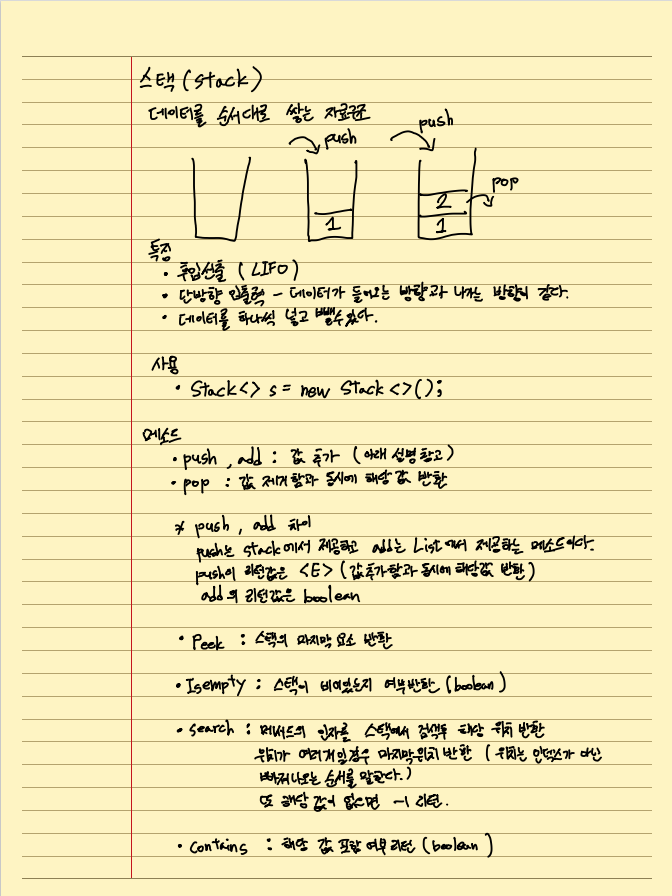 스택 (stack)
데이터를 순서대로 쌓는 자료구조
push push
pop
2
1 1
특징
• 후입선출 ( LIFO )
• 단방향 입출력 - 데이터가 들어오는 방향과 나가는 방향이 같다.
• 데이터를 하나씩 넣고 뺄수있다.
사용
• Stack<> s = new Stack <>();
메소드
• push , add : 값 추가 ( 아래 설명 참고 )
• pop : 값 제거함과 동시에 해당 값 반환
* push , add 차이
push는 stack에서 제공하고 add는 List에서 제공하는 메소드이다.
push의 리턴값은 <E> ( 값추가함과 동시에 해당값 반환 )
add의 리턴값은 boolean
• Peek : 스택의 마지막 요소 반환
• Isempty : 스택이 비어있는지 여부반환 (boolean)
• search : 메서드의 인자를 스택에서 검색후 해당 위치 반환
위치가 여러개일경우 마지막위치 반환 ( 위치는 인덱스가 아닌
빠져나오는 순서를 말한다.)
또 해당 값이 없으면 -1 리턴.
• Contains : 해당 값 포함 여부 리턴 (boolean)